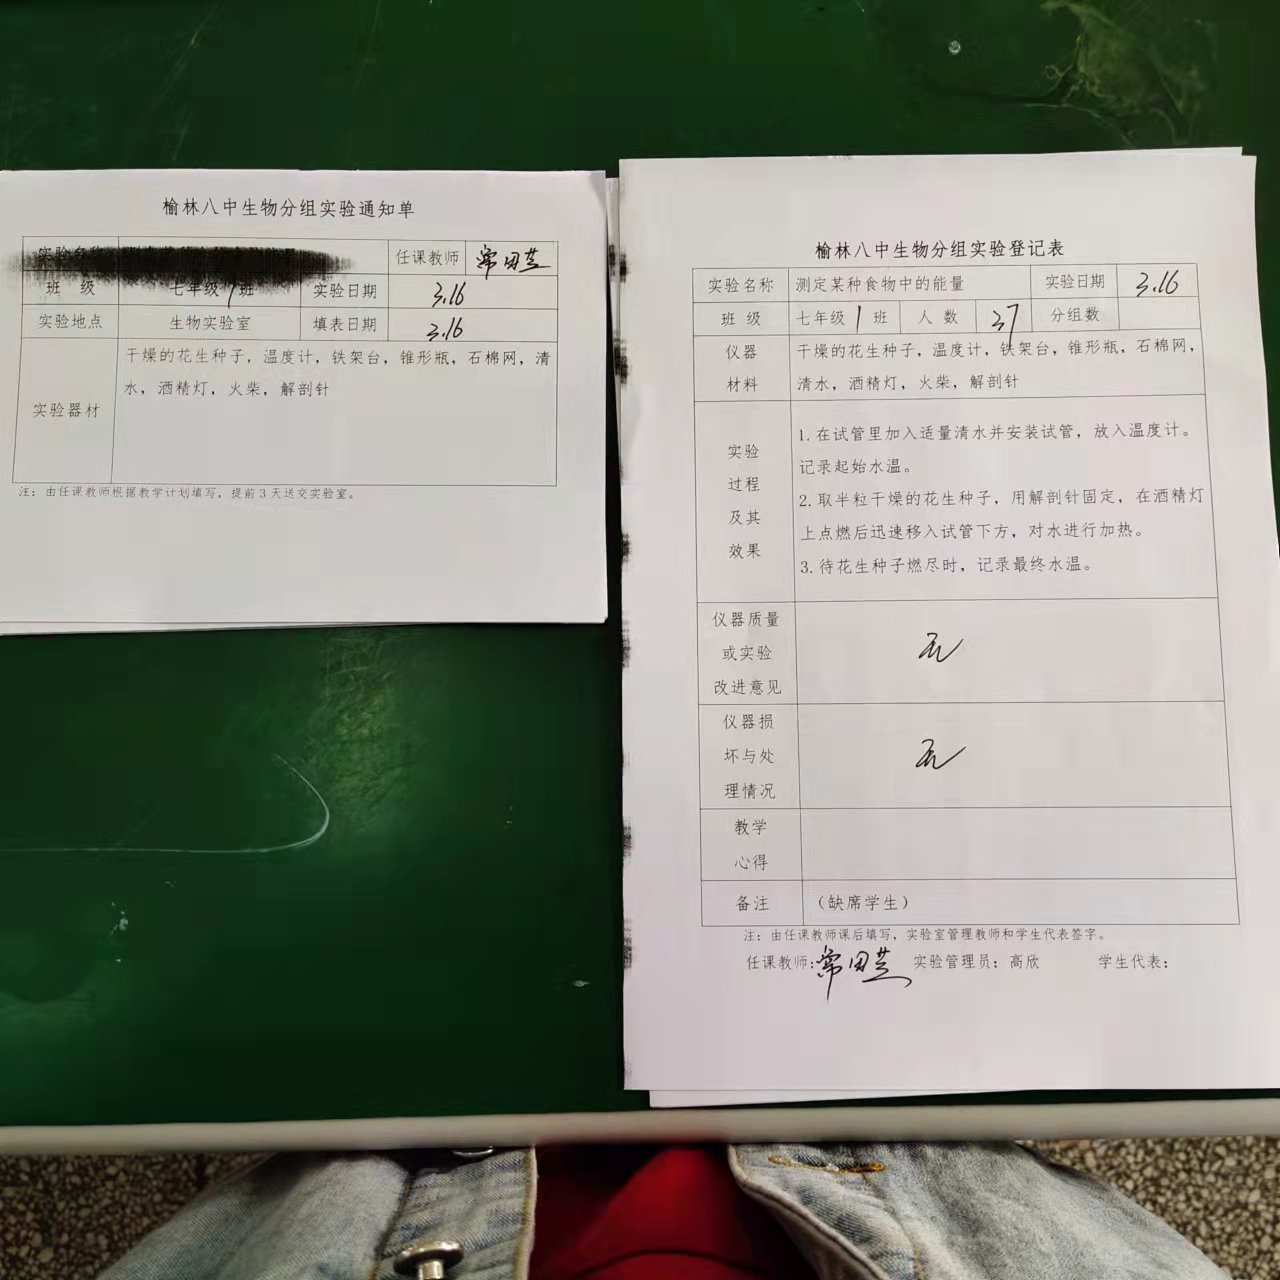 榆林八中生物分组实验通知单
实验名称
任课教师 常田芝
班 级 七年级1班 实验日期 3.16
实验地点 生物实验室 填表日期 3.16
实验器材
干燥的花生种子，温度计，铁架台，锥形瓶，石棉网，清
水，酒精灯，火柴，解剖针
注：由任课教师根据教学计划填写，提前3天送交实验室。
榆林八中生物分组实验登记表
实验名称 测定某种食物中的能量 实验日期 3.16
班 级 七年级1班 人 数 37 分组数
仪器
材料
干燥的花生种子，温度计，铁架台，锥形瓶，石棉网，
清水，酒精灯，火柴，解剖针
实验
过程
及其
效果
1.在试管里加入适量清水并安装试管，放入温度计。
记录起始水温。
2.取半粒干燥的花生种子，用解剖针固定，在酒精灯
上点燃后迅速移入试管下方，对水进行加热。
3.待花生种子燃尽时，记录最终水温。
仪器质量
或实验
改进意见
无
仪器损
坏与处
理情况
无
教学
心得
备注 （缺席学生）
注：由任课教师课后填写，实验室管理教师和学生代表签字。
任课教师：常田芝 实验管理员：高欣 学生代表：